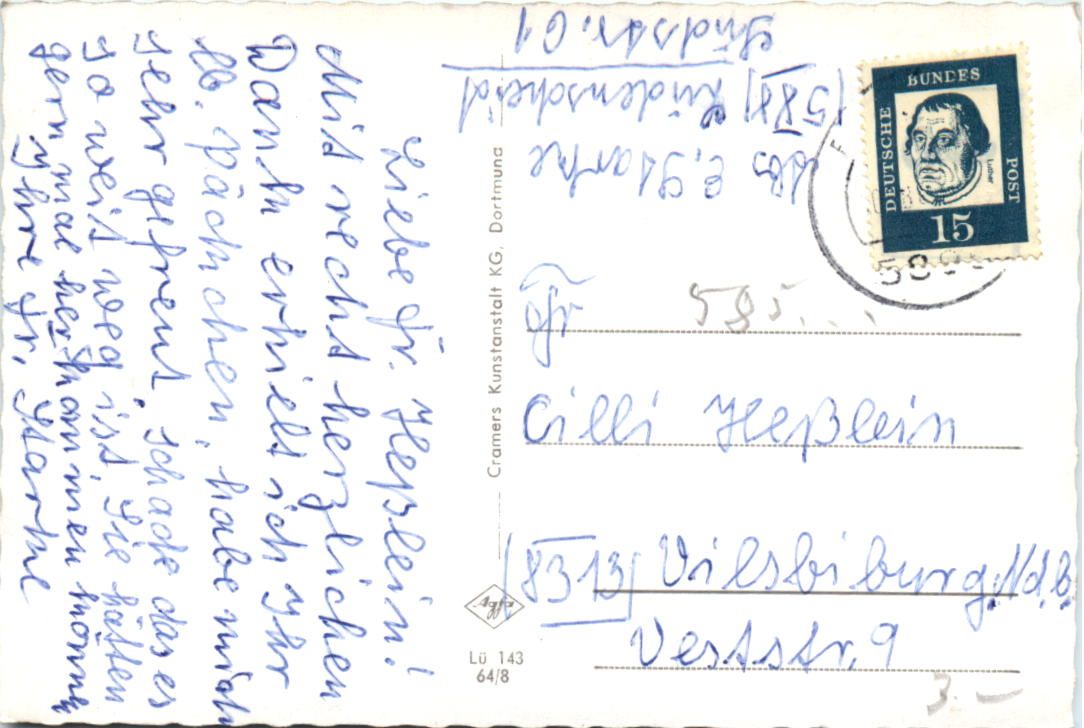 Liebe Fr. Heßlein!
Mit recht herzlichen
Dank erhielt ich Ihr
lb. päckchen, habe mich
sehr gefreut. schade das es
so weit weg ist, Sie hätten
gern mal herkommen können
Ihre Fr. Starke
Abs E. Starke
(588) Lüdenscheid
Südstr. 61
Cramers Kunstanstalt KG, Dortmund
Agfa
Lü 143
64/8
DEUTSCHE
BUNDES
POST
Luther
15
588
585...
Fr
Cilli Heßlein
(8313) Vilsbiburg Ndb.
Veststr. 9
3.—